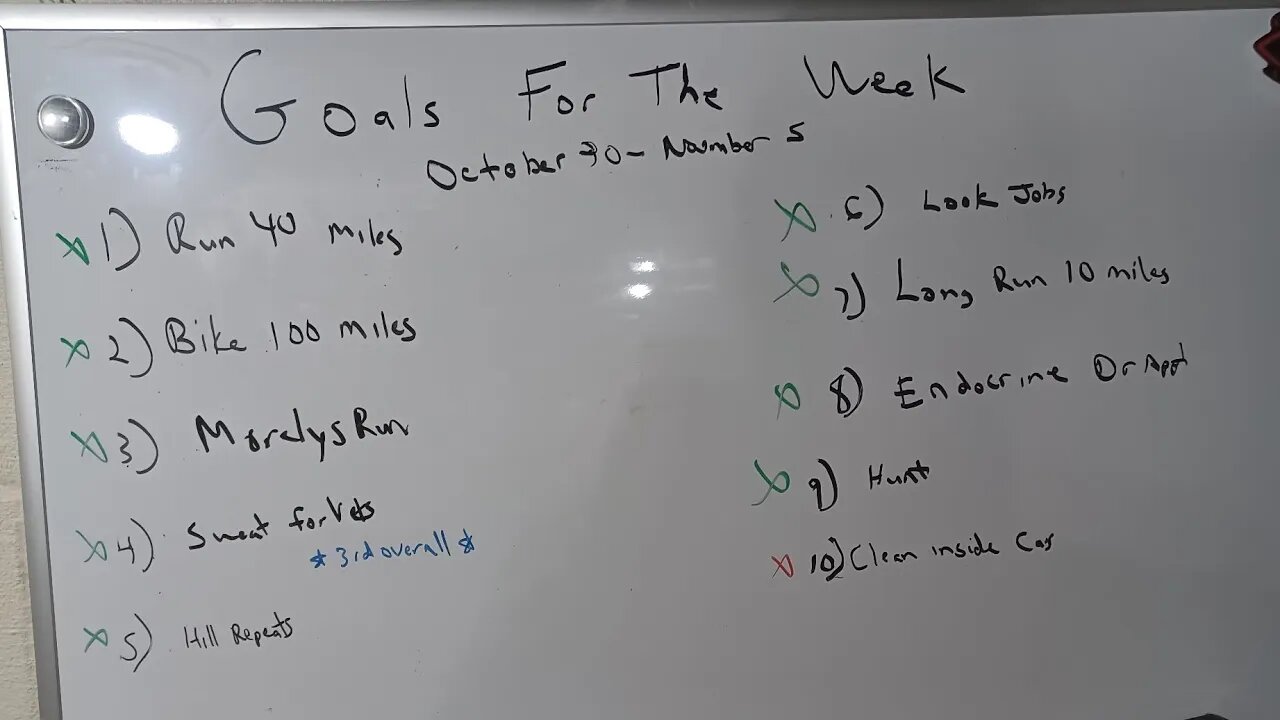 Goals For The Week
October 30 - November 5
x 1) Run 40 miles
x 2) Bike 100 miles
x 3) Mordys Run
x 4) Sweat for Vets
* 3rd overall *
x 5) Hill Repeats
x 6) Look Jobs
x 7) Long Run 10 miles
x 8) Endocrine Dr Appt
x 9) Hunt
x 10) Clean inside Car